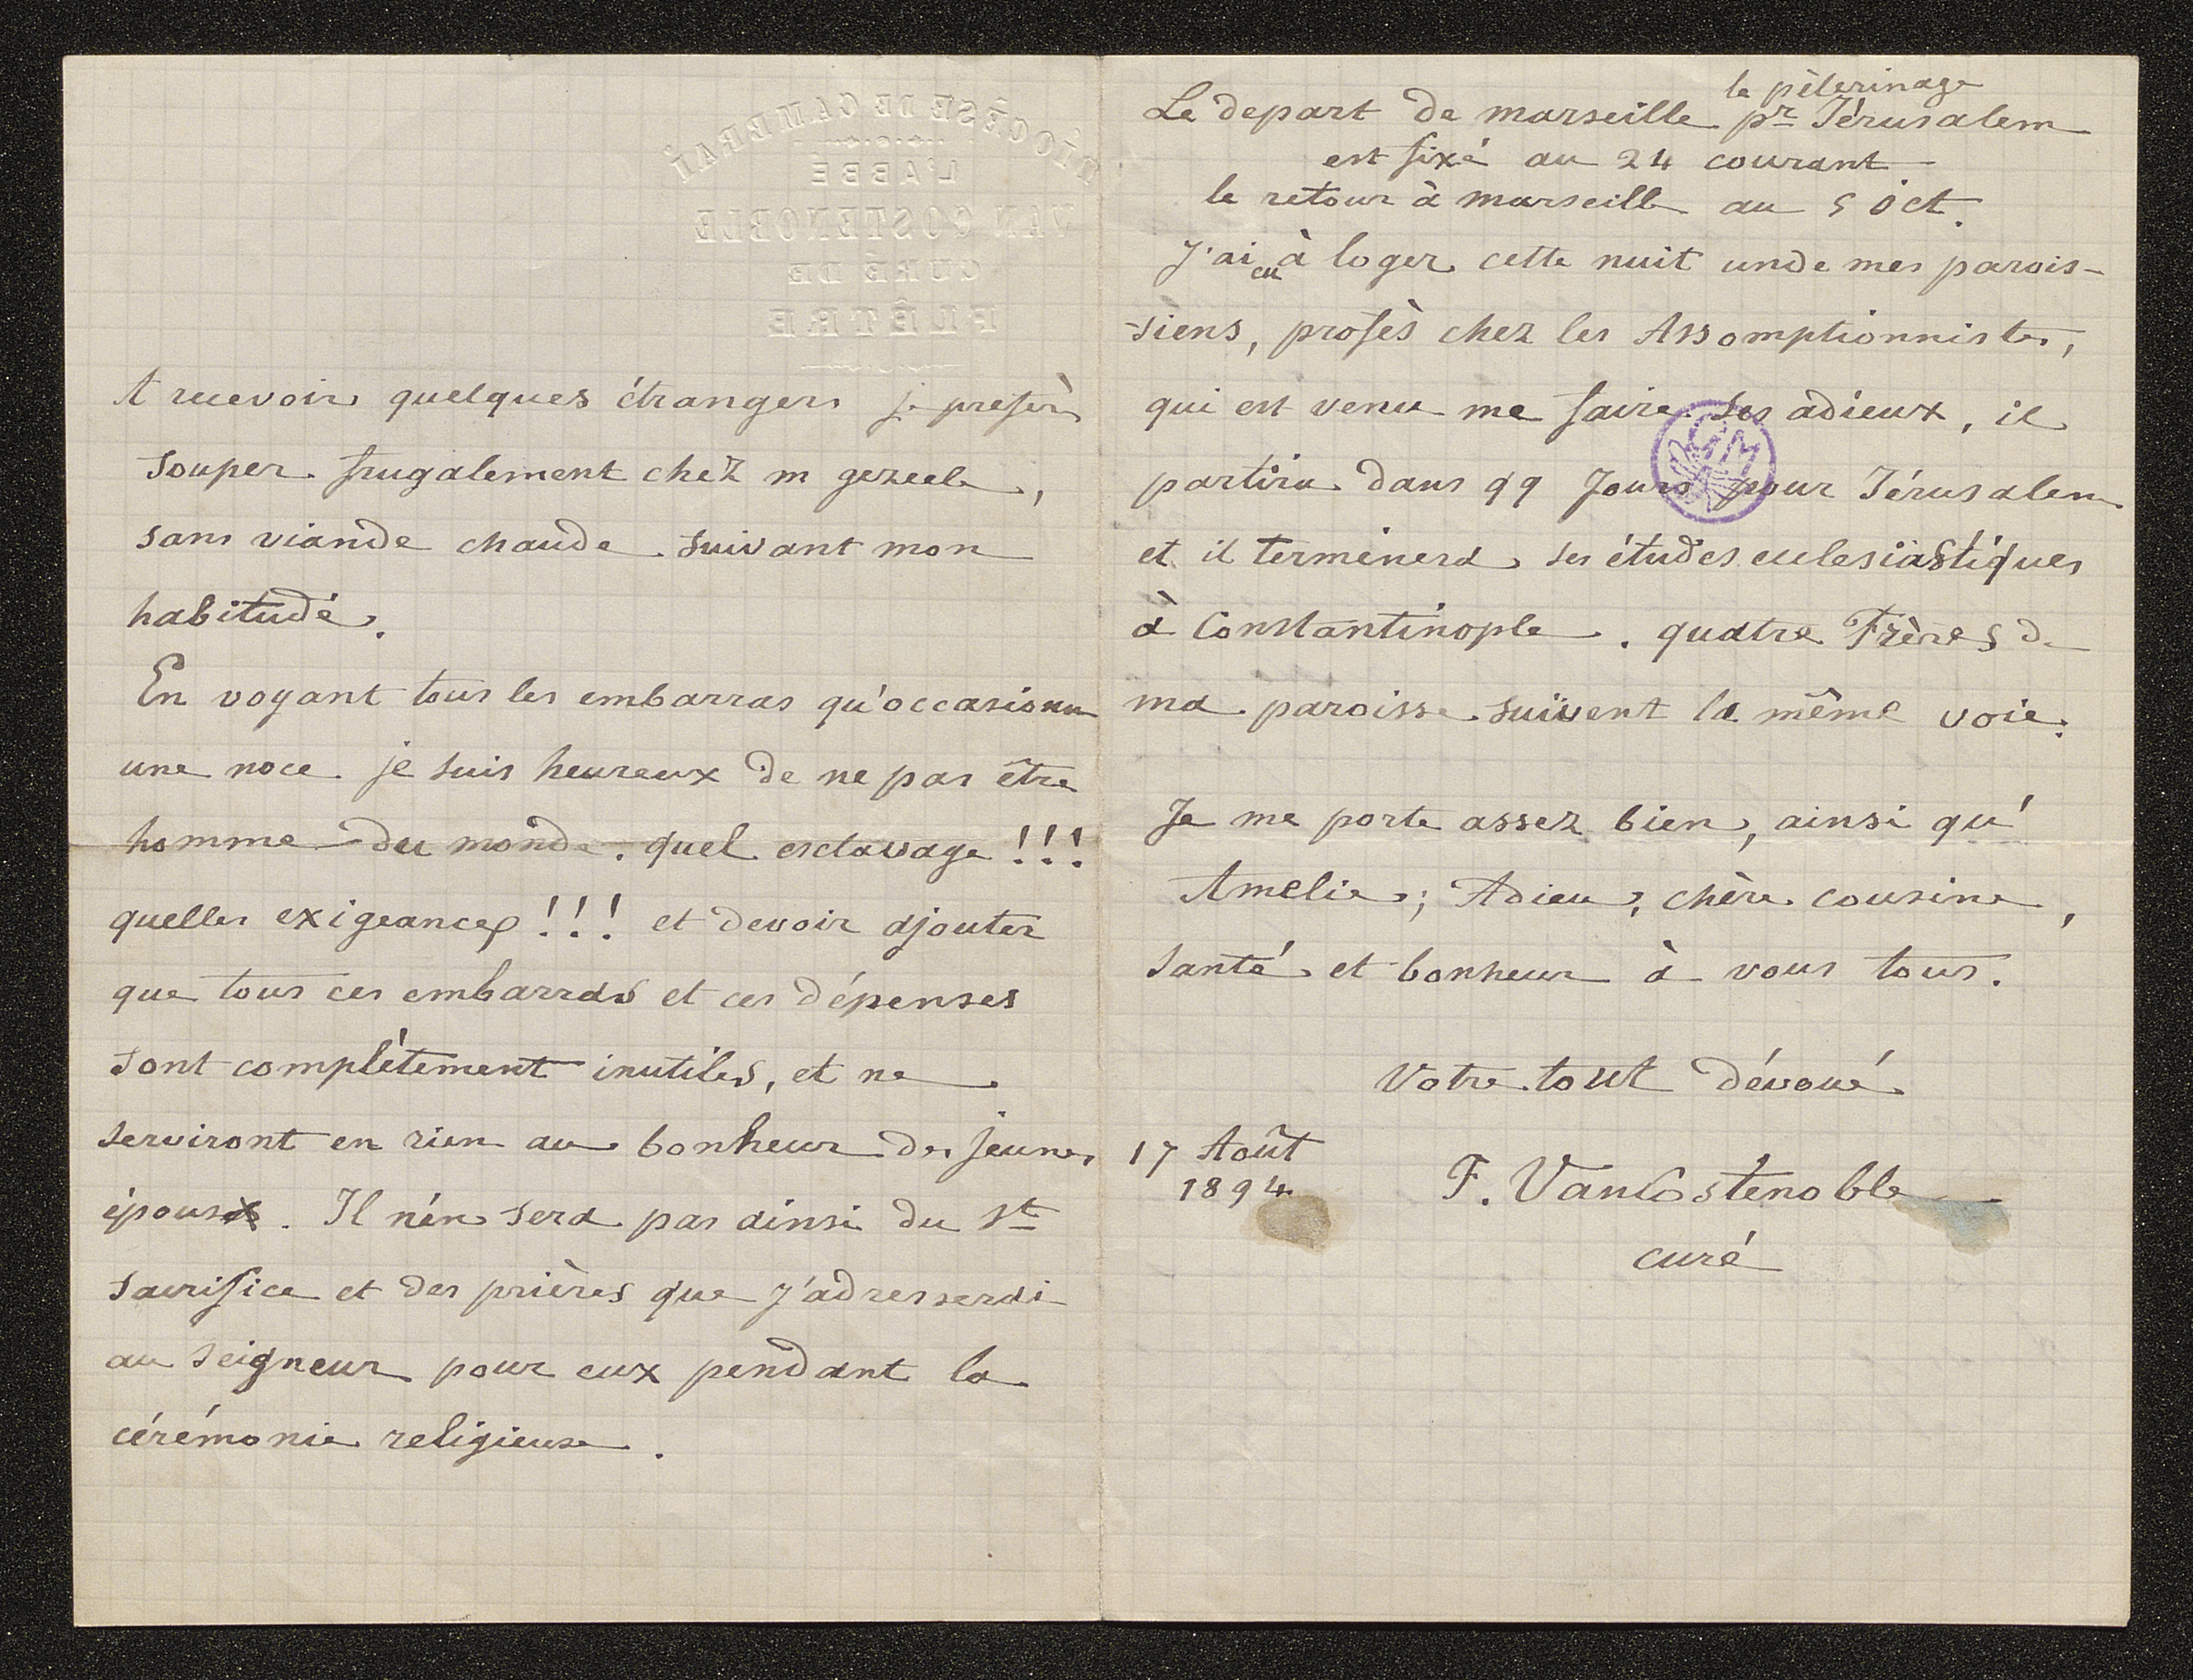 DIOCÈSE DE CAMBRAI
L'ABBÉ
VAN COSTENOBLE
CURÉ DE
FLÊTRE
A recevoir quelques étrangers je prefère
souper frugalement chez m gezeele,
sans viande chaude suivant mon
habitude.
En voyant tous les embarras qu'occasionne
une noce je suis heureux de ne pas être
homme du monde. quel esclavage !!!
quelles exigeances !!! et devoir ajouter
que tous ces embarras et ces dépenses
sont complètement inutiles, et ne
serviront en rien au bonheur des jeunes
époux. Il n'en sera pas ainsi du St
sacrifice et des prières que j'adresserai
au Seigneur pour eux pendant la
cérémonie religieuse.
le pèlerinage
Le depart de marseille pr Jérusalem
est fixé au 24 courant
le retour à marseille au 5 Oct.
J'ai eu à loger cette nuit un de mes parois-
-siens, profès chez les Assomptionnistes,
qui est venu me faire ses adieux, il
partira dans qq jours pour Jérusalem
et il terminera ses études ecclesiastiques
à Constantinople. quatre Frères de
ma paroisse suivent la même voie.
Je me porte assez bien, ainsi qu'
Amelie; Adieu, chère cousine,
santé et bonheur à vous tous.
Votre tout dévoué
17 Août
1894
F. VanCostenoble
curé